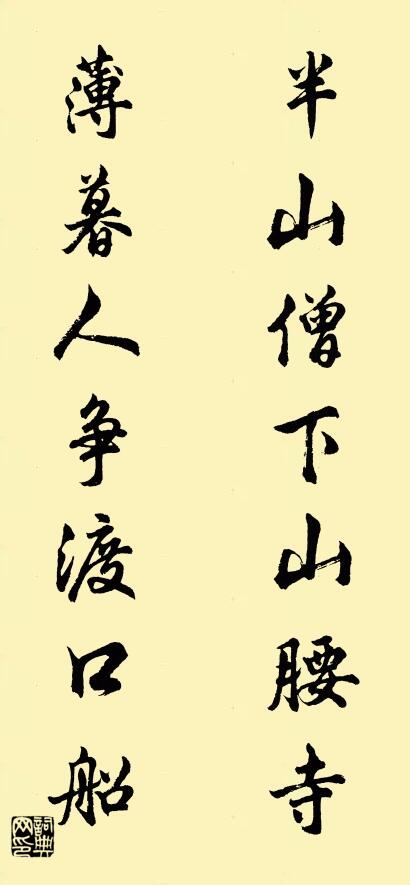 半山僧下山腰寺
薄暮人争渡口船
詞典网印